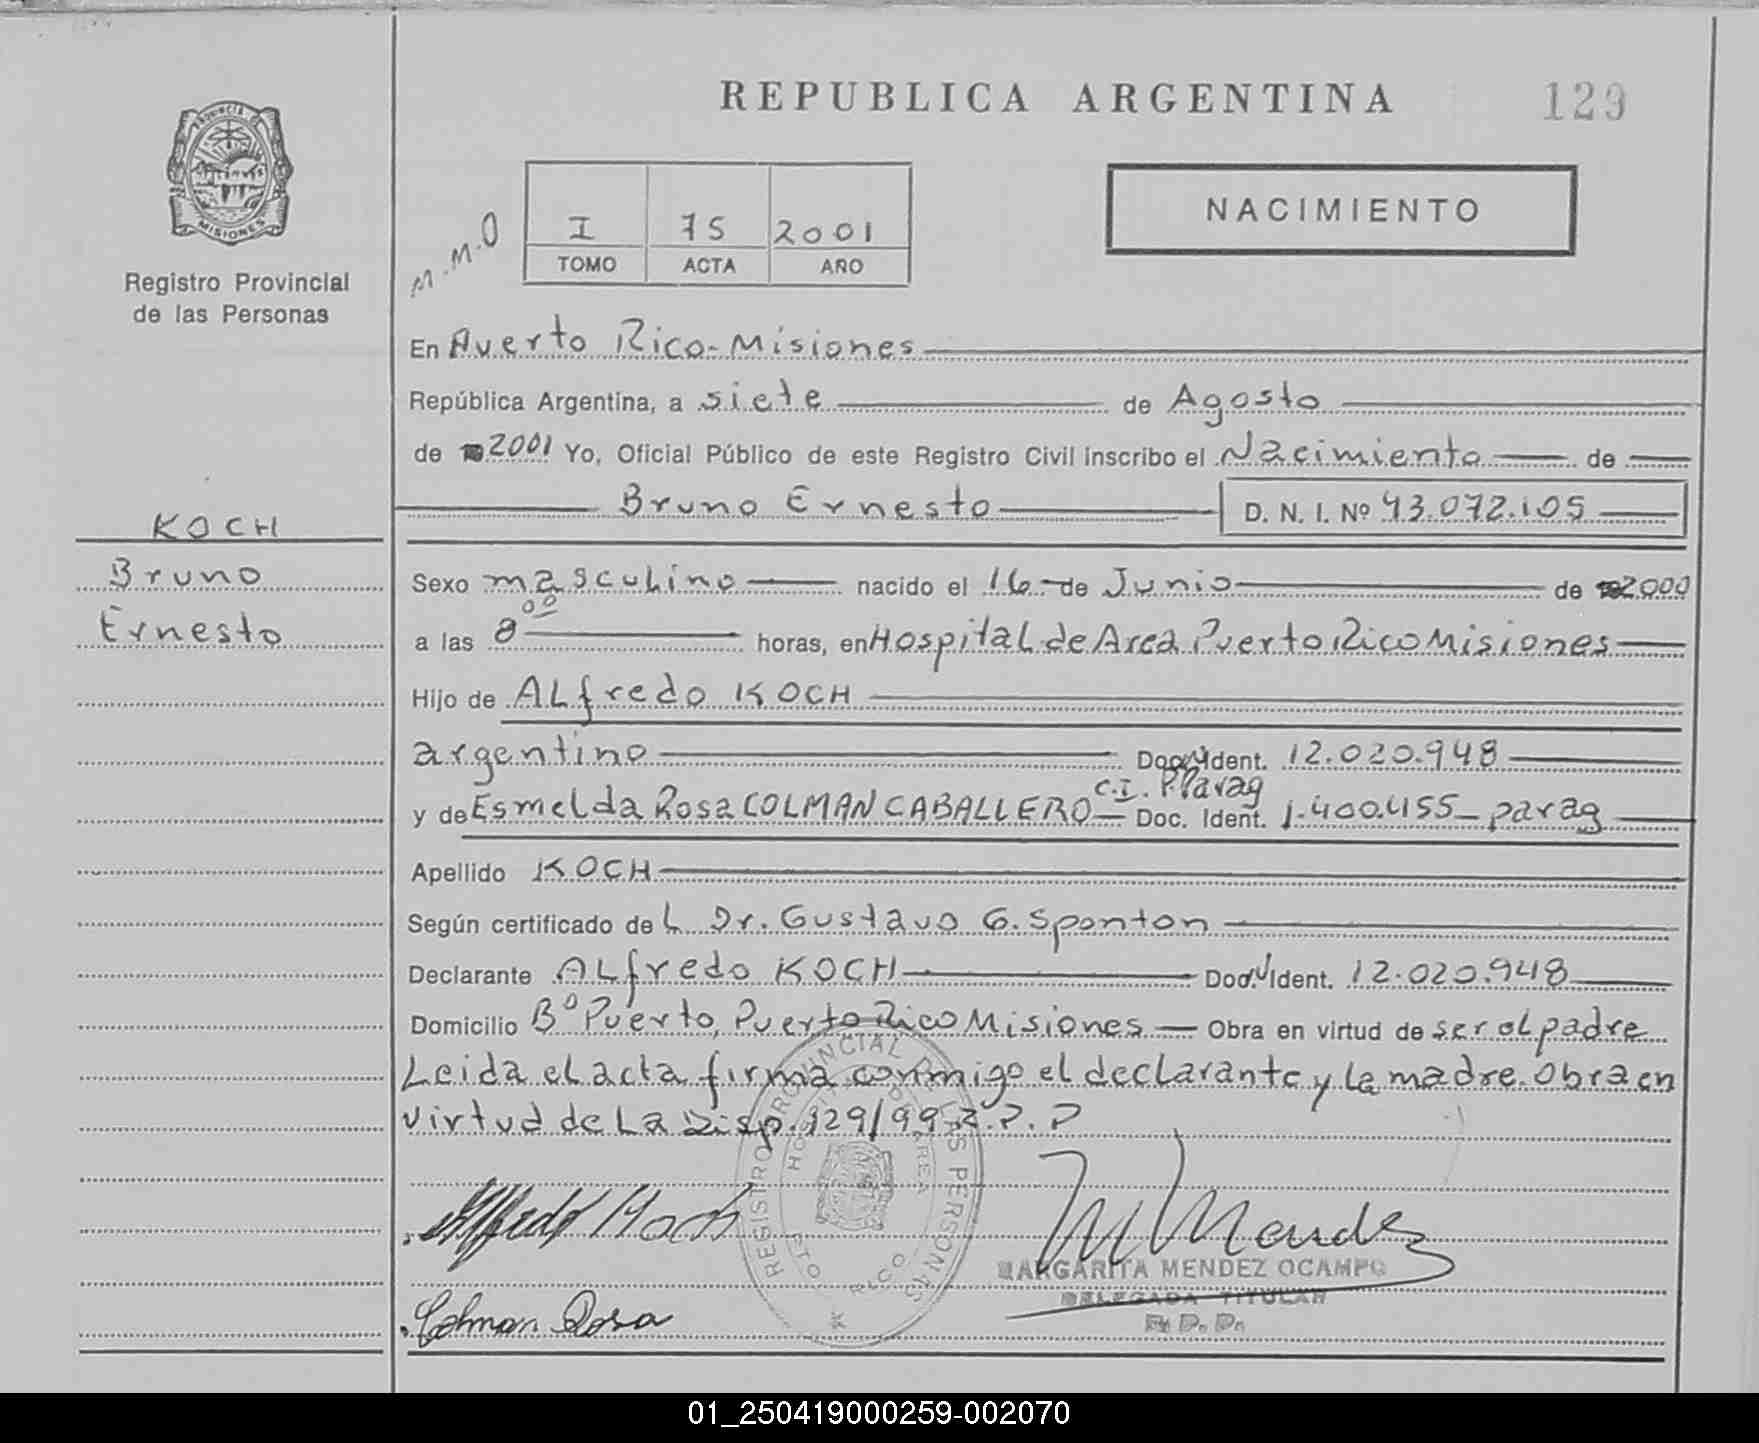 REPUBLICA ARGENTINA
129
PROVINCIA DE
MISIONES
Registro Provincial
de las Personas
M.M.O
I 75 2001
TOMO ACTA AÑO
NACIMIENTO
En Puerto Rico-Misiones
República Argentina, a siete de Agosto
de 2001 Yo, Oficial Público de este Registro Civil inscribo el Nacimiento de
Bruno Ernesto D. N. I. Nº 43.072.105
KOCH
Bruno
Ernesto
Sexo masculino nacido el 16 de Junio de 2000
a las 8 00 horas, en Hospital de Area Puerto Rico Misiones
Hijo de ALfredo KOCH
argentino Doc. Ident. 12.020.948
C.I. Parag
y de Esmelda Rosa COLMAN CABALLERO Doc. Ident. 1.400.455 parag
Apellido KOCH
Según certificado de L Dr. Gustavo G. Sponton
Declarante ALfredo KOCH Doc. Ident. 12.020.948
Domicilio Bº Puerto, Puerto Rico Misiones Obra en virtud de ser el padre
Leida el acta firma conmigo el declarante y La madre. Obra en
virtud de La Disp. 129/99 R.P.P
REGISTRO PROVINCIAL DE LAS PERSONAS
HOSPITAL DE AREA
PTO RICO
Alfredo Koch
M Mendez
MARGARITA MENDEZ OCAMPO
DELEGADA TITULAR
R. P. P.
Colman Rosa
01_250419000259-002070